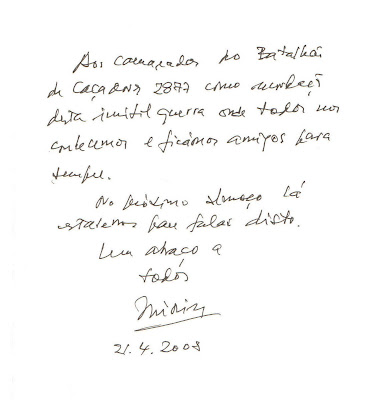 Aos camaradas do Batalhão
de Caçadores 2877 como recordação
desta inútil guerra onde todos nos
conhecemos e ficámos amigos para
sempre.
No próximo almoço lá
estaremos para falar disto.
Um abraço a
todos
21.4.2008